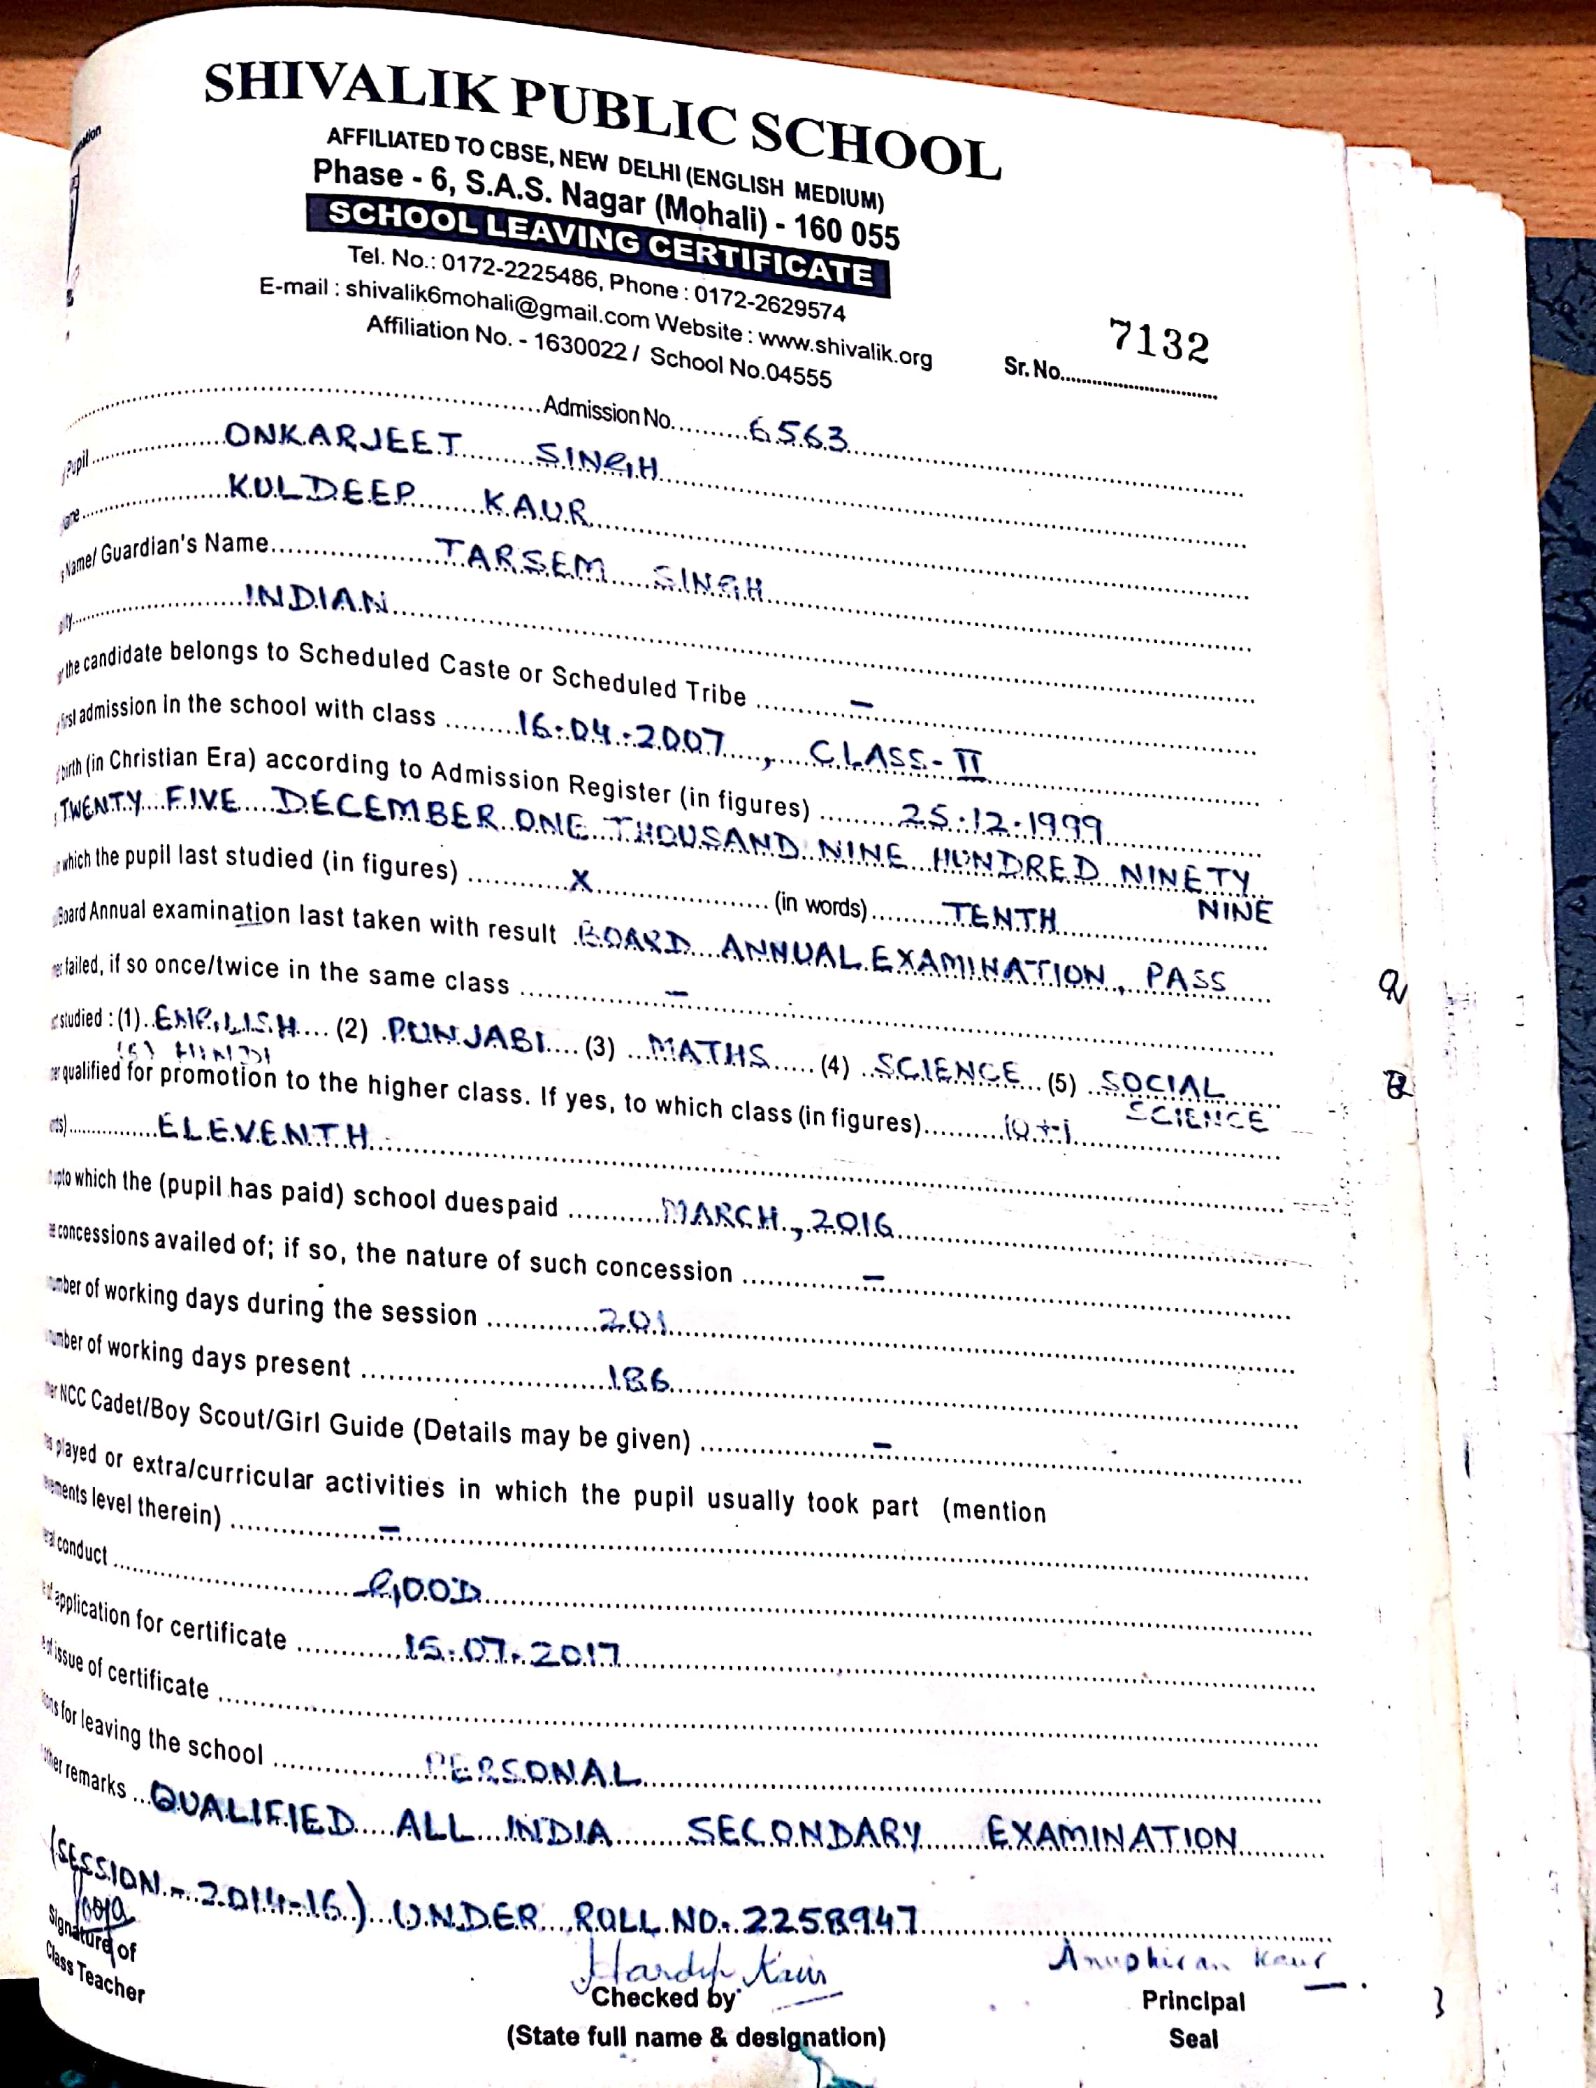 SHIVALIK PUBLIC SCHOOL
AFFILIATED TO CBSE, NEW DELHI (ENGLISH MEDIUM)
Phase - 6, S.A.S. Nagar (Mohali) - 160 055
SCHOOL LEAVING CERTIFICATE
Tel. No.: 0172-2225486, Phone : 0172-2629574
E-mail : shivalik6mohali@gmail.com Website : www.shivalik.org
Affiliation No. - 1630022 / School No.04555
Sr. No. 7132
Admission No. 6563
Pupil ONKARJEET SINGH
KULDEEP KAUR
Name/ Guardian's Name TARSEM SINGH
INDIAN
the candidate belongs to Scheduled Caste or Scheduled Tribe –
first admission in the school with class 16-04-2007, CLASS-II
birth (in Christian Era) according to Admission Register (in figures) 25-12-1999
TWENTY FIVE DECEMBER ONE THOUSAND NINE HUNDRED NINETY
NINE
which the pupil last studied (in figures) X (in words) TENTH
Board Annual examination last taken with result BOARD ANNUAL EXAMINATION, PASS
failed, if so once/twice in the same class –
studied : (1) ENGLISH (2) PUNJABI (3) MATHS (4) SCIENCE (5) SOCIAL
SCIENCE
(6) HINDI
qualified for promotion to the higher class. If yes, to which class (in figures) 10+1
ELEVENTH
upto which the (pupil has paid) school duespaid MARCH, 2016
concessions availed of; if so, the nature of such concession –
number of working days during the session 201
number of working days present 186
NCC Cadet/Boy Scout/Girl Guide (Details may be given) –
played or extra/curricular activities in which the pupil usually took part (mention
level therein) –
conduct GOOD
application for certificate 15-07-2017
issue of certificate
for leaving the school PERSONAL
remarks QUALIFIED ALL INDIA SECONDARY EXAMINATION
(SESSION - 2014-16) UNDER ROLL NO. 2258947
Pooja
Signature of
Class Teacher
Hardip Kaur
Checked by
(State full name & designation)
Anupkiran Kaur
Principal
Seal